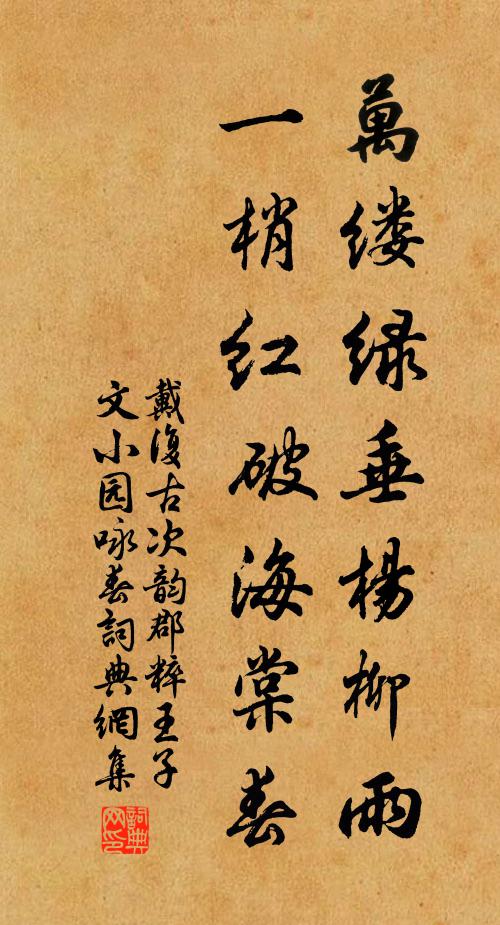 萬缕绿垂楊柳雨
一梢红破海棠春
戴復古次韵郡粹王子
文小园咏春詞典網集
詞典
网印